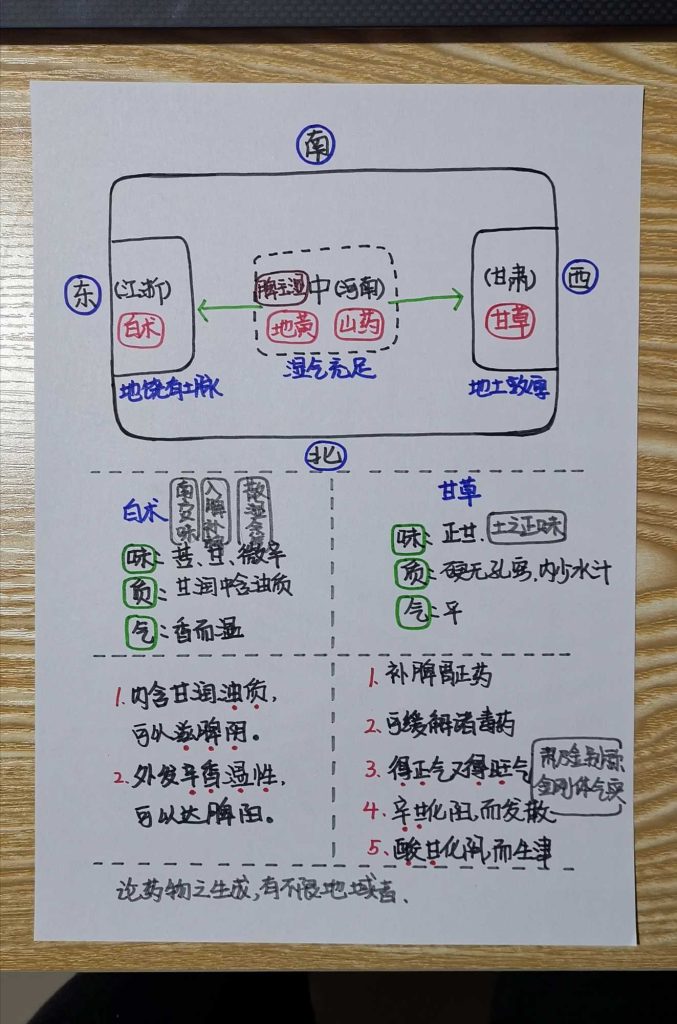 南
东
西
(江浙)
白术
脾主湿
中(河南)
地黄
山药
(甘肃)
甘草
地饶有土脉
湿气充足
地土敦厚
北
白术
入脾补
散湿
味:苦、甘、微辛
质:甘润中含油质
气:香而温
甘草
味:正甘.
土之正味
质:硬无孔窍,内少水汁
气:平
1.内含甘润油质,
可以滋脾阴。
2.外发辛香温性,
可以达脾阳。
1.补脾胃正药
2.可缓解诸毒药
3.得正气又得旺气
金刚体气实
4.辛甘化阳,而发散
5.酸甘化阴,而生津
论药物之生成,有不限地域者.